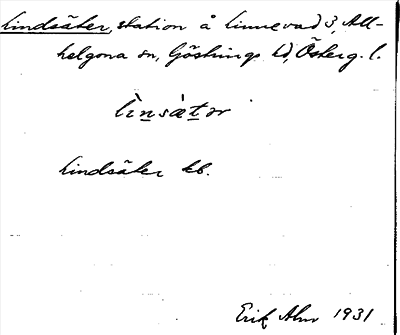 Lindsäter, station å Linnevad 3, All-
helgona sn, Göstrings hd, Österg. l.
lìnsæ̀tər
Lindsäter kb.
Erik Alm 1931